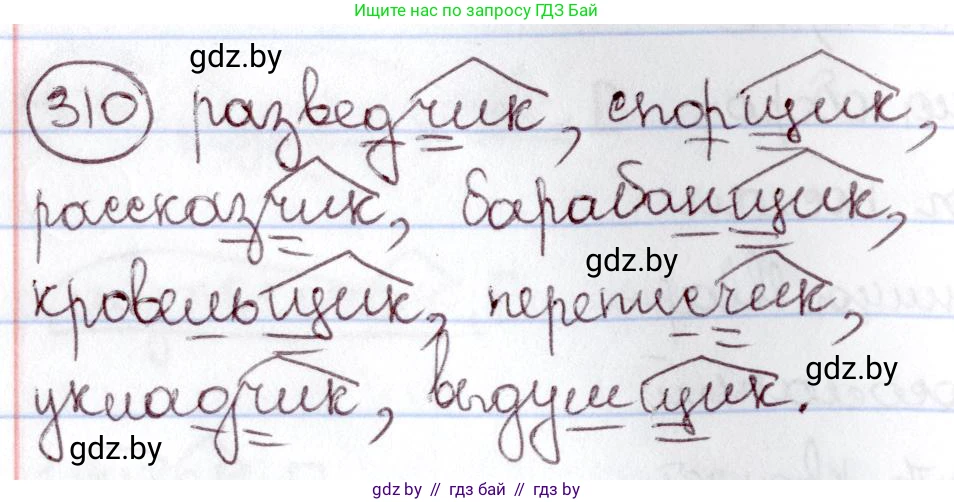 Ищите нас по запросу ГДЗ Бай
gdz.by
310 разведчик, спорщик,
рассказчик, барабанщик,
gdz.by
кровельщик, переписчик,
gdz.by
укладчик, выдумщик.
gdz.by
gdz.by // гдз бай // gdz by